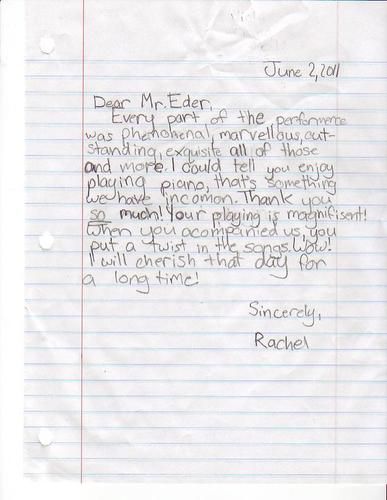 June 2, 2011
Dear Mr. Eder,
Every part of the performence
was phenhonenal, marvellous, out-
standing, exquisite all of those
and more. I could tell you enjoy
playing piano, that's something
we have incomon. Thank you
so much! Your playing is magnifisent!
When you acompanied us, you
put a twist in the songs. Wow!
I will cherish that day for
a long time!
Sincerely,
Rachel